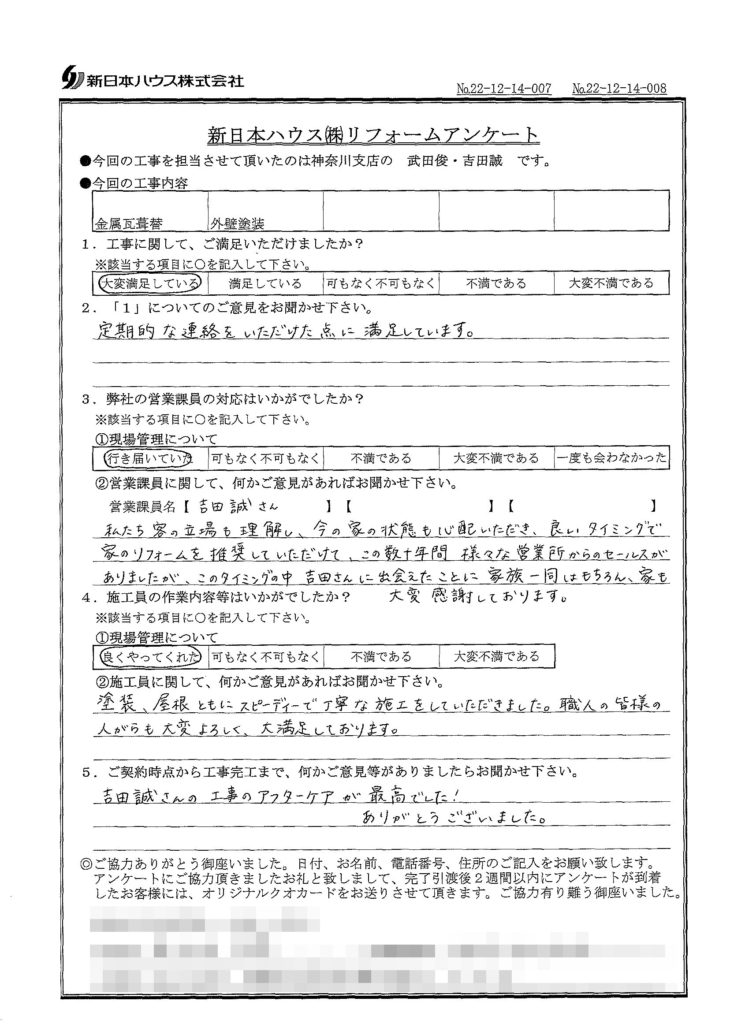 新日本ハウス株式会社
No.22-12-14-007 No.22-12-14-008
新日本ハウス㈱リフォームアンケート
●今回の工事を担当させて頂いたのは神奈川支店の 武田俊・吉田誠 です。
●今回の工事内容
金属瓦葺替 外壁塗装
1.工事に関して、ご満足いただけましたか?
※該当する項目に○を記入して下さい。
大変満足している 満足している 可もなく不可もなく 不満である 大変不満である
2.「1」についてのご意見をお聞かせ下さい。
定期的な連絡をいただけた点に満足しています。
3.弊社の営業課員の対応はいかがでしたか?
※該当する項目に○を記入して下さい。
①現場管理について
行き届いていた 可もなく不可もなく 不満である 大変不満である 一度も会わなかった
②営業課員に関して、何かご意見があればお聞かせ下さい。
営業課員名【 吉田誠さん 】【 】【 】
私たち客の立場も理解し、今の家の状態も心配いただき、良いタイミングで
家のリフォームを推奨していただけて、この数十年間 様々な営業所からのセールスが
ありましたが、このタイミングの中 吉田さんに出会えたことに 家族一同はもちろん、家も
大変 感謝しております。
4.施工員の作業内容等はいかがでしたか?
※該当する項目に○を記入して下さい。
①現場管理について
良くやってくれた 可もなく不可もなく 不満である 大変不満である
②施工員に関して、何かご意見があればお聞かせ下さい。
塗装、屋根ともにスピーディーで丁寧な施工をしていただきました。職人の皆様の
人がらも大変よろしく、大満足しております。
5.ご契約時点から工事完工まで、何かご意見等がありましたらお聞かせ下さい。
吉田誠さんの工事のアフターケアが最高でした!
ありがとうございました。
◎ご協力ありがとう御座いました。日付、お名前、電話番号、住所のご記入をお願い致します。
アンケートにご協力頂きましたお礼と致しまして、完了引渡後2週間以内にアンケートが到着
したお客様には、オリジナルクオカードをお送りさせて頂きます。ご協力有り難う御座いました。